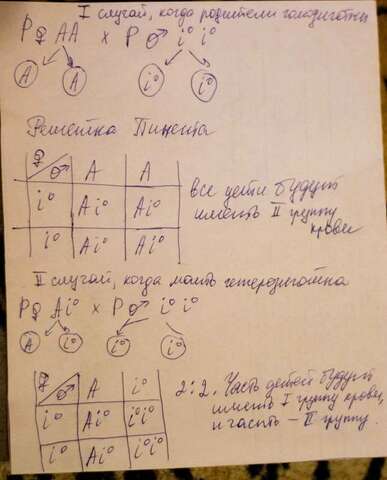 I случай, когда родители гомозиготны
P ♀ AA x P ♂ i⁰ i⁰
A A i⁰ i⁰
Решетка Пиннета
♀ ♂ A A
i⁰ Ai⁰ Ai⁰
i⁰ Ai⁰ Ai⁰
все дети будут
иметь II группу
крови
II случай, когда мать гетерозиготна
P ♀ Ai⁰ x P ♂ i⁰ i⁰
A i⁰ i⁰ i⁰
♀ ♂ A i⁰
i⁰ Ai⁰ i⁰i⁰
i⁰ Ai⁰ i⁰i⁰
2:2. Часть детей будут
иметь I группу крови,
и часть – II группу.